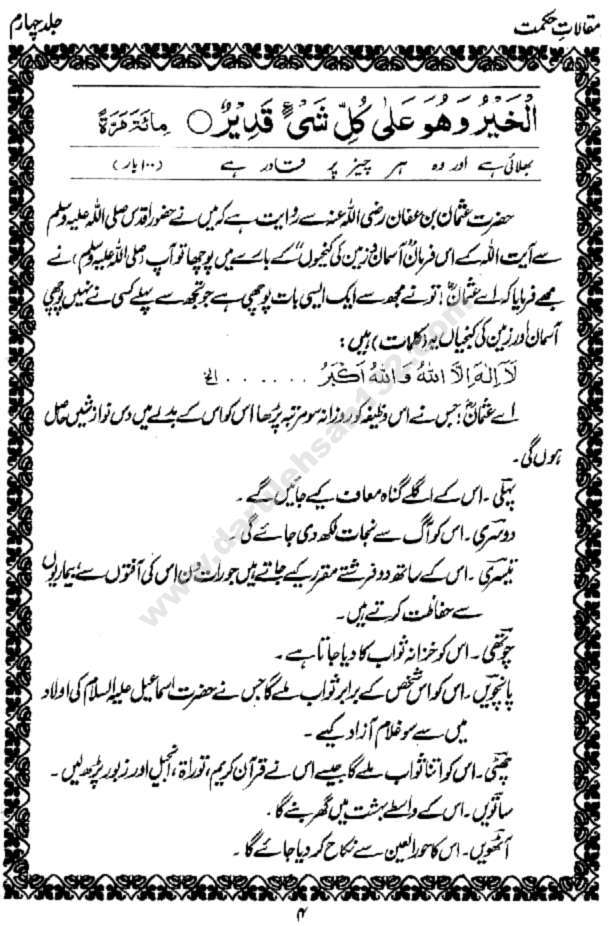 مقالاتِ حکمت
جلد چہارم
الْخَيْرُ وَهُوَ عَلٰى كُلِّ شَیْءٍ قَدِيْرٌ ○ مِائَةَ مَرَّةٍ
بھلائی ہے اور وہ ہر چیز پر قادر ہے (۱۰۰ بار)
حضرت عثمان بن عفان رضی اللہ عنہ سے روایت ہے کہ میں نے حضور اقدس صلی اللہ علیہ وسلم
سے آیت اللہ کے اس فرمان "آسمان و زمین کی کنجیوں" کے بارے میں پوچھا تو آپ (صلی اللہ علیہ وسلم) نے
مجھے فرمایا کہ اے عثمانؓ! تو نے مجھ سے ایک ایسی بات پوچھی ہے جو تجھ سے پہلے کسی نے نہیں پوچھی
آسمان اور زمین کی کنجیاں یہ (کلمات) ہیں :
لَآ اِلٰهَ اِلَّا اللّٰهُ وَاللّٰهُ اَكْبَرُ . . . . . . الخ
اے عثمانؓ! جس نے اس وظیفہ کو روزانہ سو مرتبہ پڑھا اس کو اس کے بدلے میں دس نوازشیں حاصل
ہوں گی۔
پہلی ۔ اس کے اگلے گناہ معاف کیے جائیں گے ۔
دوسری ۔ اس کو آگ سے نجات لکھ دی جائے گی ۔
تیسری ۔ اس کے ساتھ دو فرشتے مقرر کیے جاتے ہیں جو رات دن اس کی آفتوں سے، بیماریوں
سے حفاظت کرتے ہیں ۔
چوتھی ۔ اس کو خزانہ ثواب کا دیا جاتا ہے ۔
پانچویں ۔ اس کو اس شخص کے برابر ثواب ملے گا جس نے حضرت اسماعیل علیہ السلام کی اولاد
میں سے سو غلام آزاد کیے ۔
چھٹی ۔ اس کو اتنا ثواب ملے گا جیسے اس نے قرآن کریم، توراۃ، انجیل اور زبور پڑھ لیں ۔
ساتویں ۔ اس کے واسطے بہشت میں گھر بنے گا ۔
آٹھویں ۔ اس کا حور العین سے نکاح کر دیا جائے گا ۔
۴